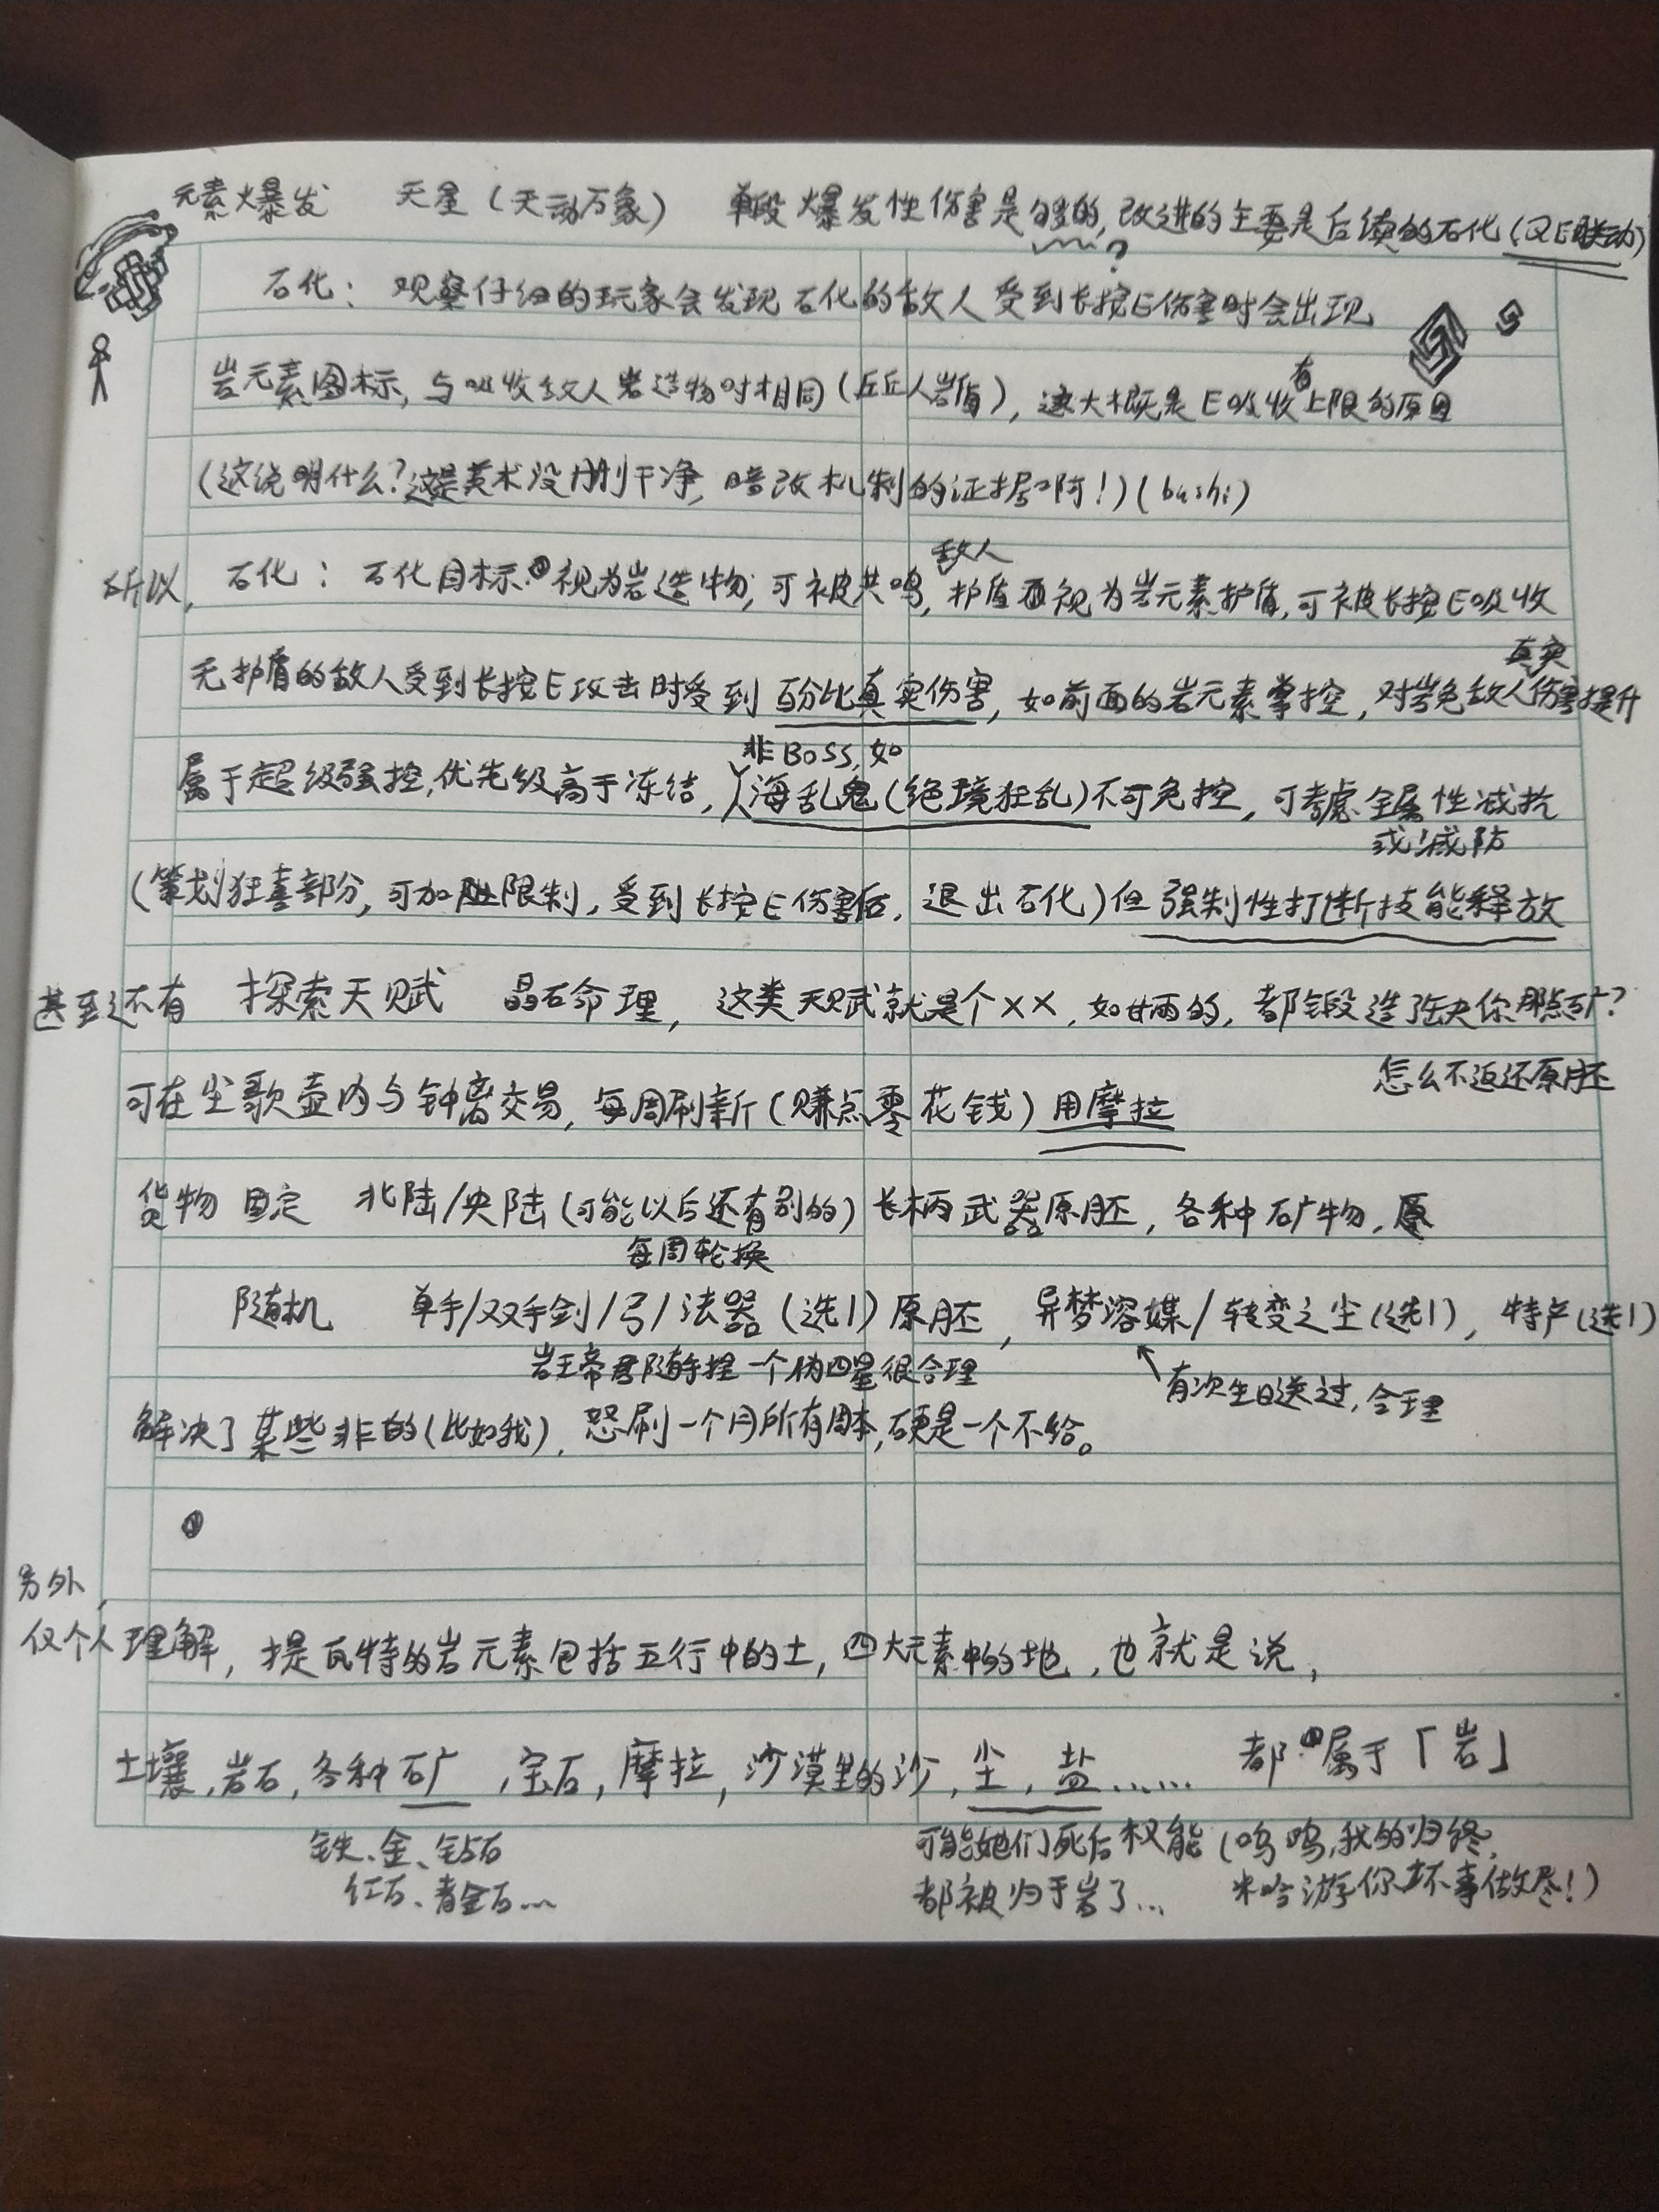 元素爆发 天星(天动万象) 单段爆发性伤害是够的,改进的主要是后续的石化(又E联动)
?
石化: 观察仔细的玩家会发现石化的敌人受到长按E伤害时会出现
岩元素图标,与吸收敌人岩造物时相同(丘丘人岩盾),这大概是E吸收有上限的原因
(这说明什么?这是美术没删干净,暗改机制的证据啊!)(bushi)
所以,石化:石化目标视为岩造物,可被共鸣,敌人护盾视为岩元素护盾,可被长按E吸收
无护盾的敌人受到长按E攻击时受到百分比真实伤害,如前面的岩元素掌控,对岩色敌人真实伤害提升
属于超级强控,优先级高于冻结,非BOSS,如海乱鬼(绝境狂乱)不可免控,可考虑全属性减抗
或减防
(策划狂喜部分,可加限制,受到长按E伤害后,退出石化)但强制性打断技能释放
甚至还有 探索天赋 晶石命理,这类天赋就是个××,如甘雨的,都锻造了缺你那点矿?
怎么不返还原胚
可在尘歌壶内与钟离交易,每周刷新(赚点零花钱)用摩拉
货物 固定 北陆/央陆(可能以后还有别的)长柄武器原胚,各种矿物,
每周轮换
随机 单手/双手剑/弓/法器(选1)原胚,异梦溶媒/转变之尘(选1),特产(选1)
岩王帝君随手捏一个伪四星很合理
有次生日送过,合理
解决了某些非的(比如我),怒刷一个月所有周本,硬是一个不给。
另外,
仅个人理解,提瓦特的岩元素包括五行中的土,四大元素中的地,也就是说,
土壤,岩石,各种矿,宝石,摩拉,沙漠里的沙,尘,盐…… 都属于「岩」
铁、金、钻石
红石、青金石…
可能她们死后权能
都被归于岩了…
(呜呜,我的归终,
米哈游你坏事做尽!)